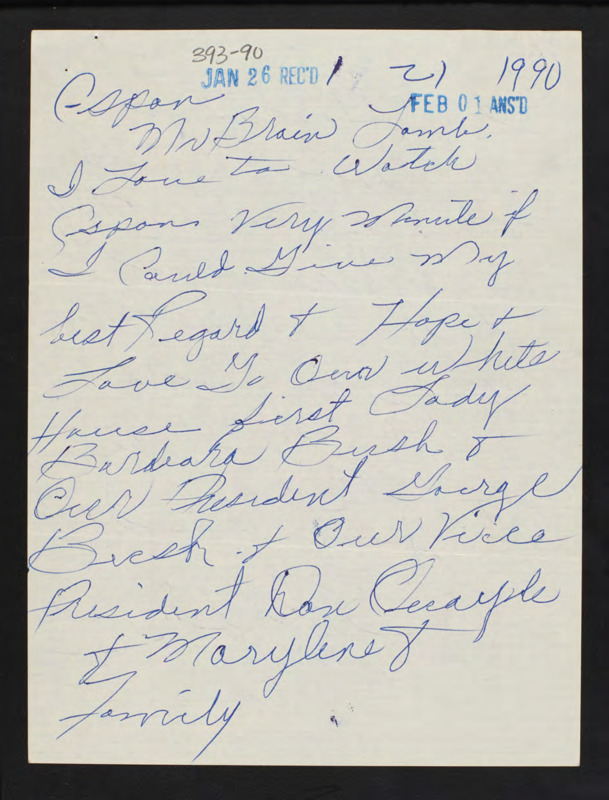 393-90
JAN 26 REC'D 1 21 1990
Cspan FEB 01 ANS'D
Mr Brain Lamb.
I Love to Watch
Cspan Very Minute if
I Could Give My
best Regard + Hope +
Love To Our White
House first Lady
Bardbara Bush +
Our President George
Bush + Our Vice
President Dan Quayle
+ Marylene +
Family